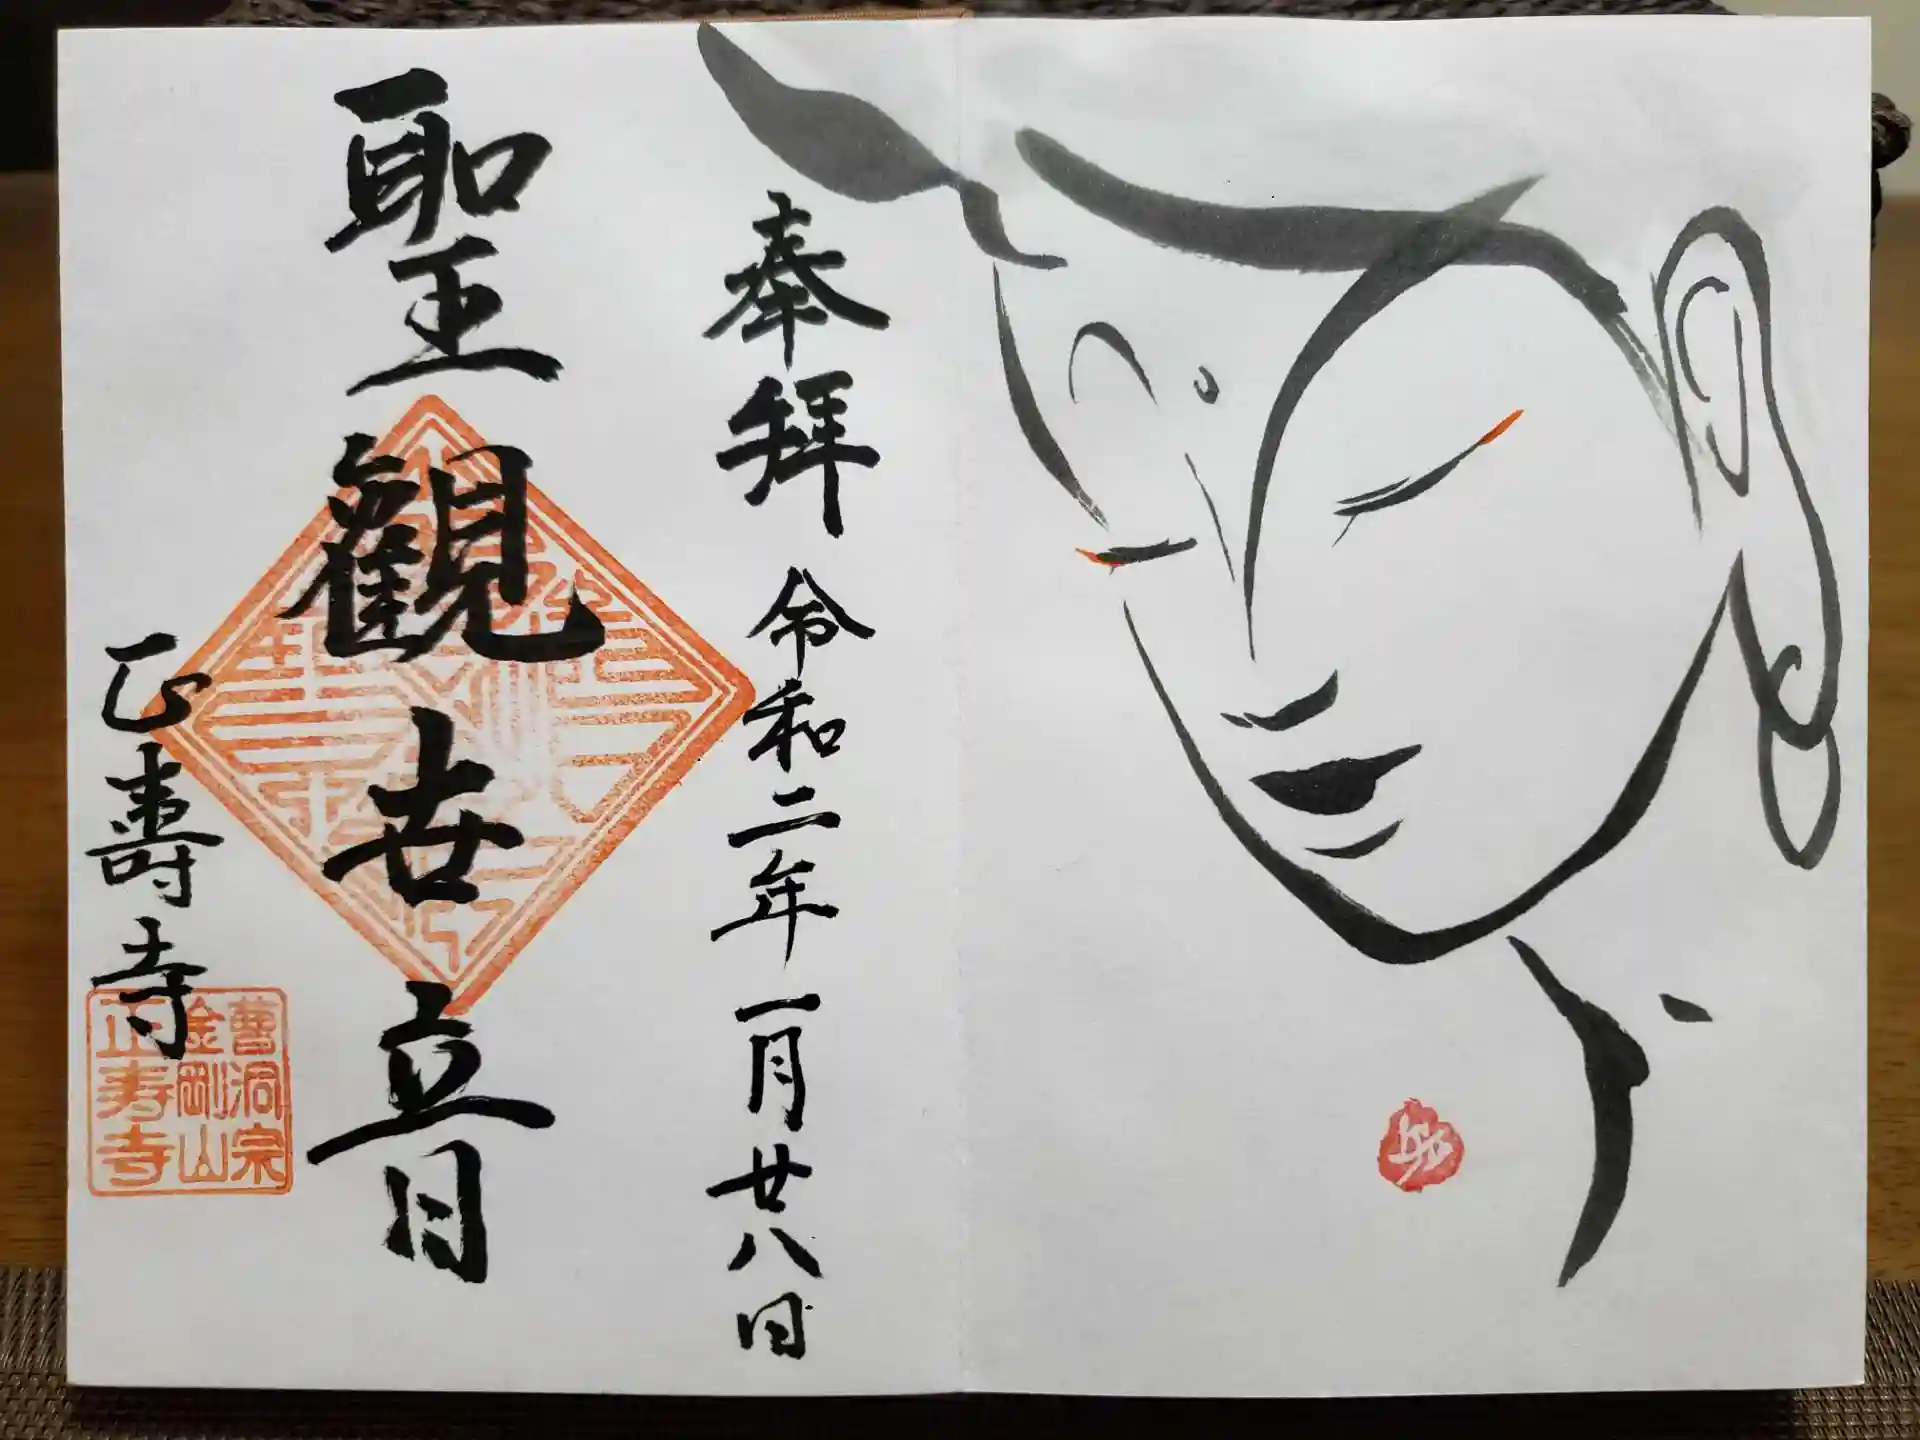 奉拜 令和二年一月廿八日
聖觀世音
正壽寺
曹洞宗
金剛山
正寿寺